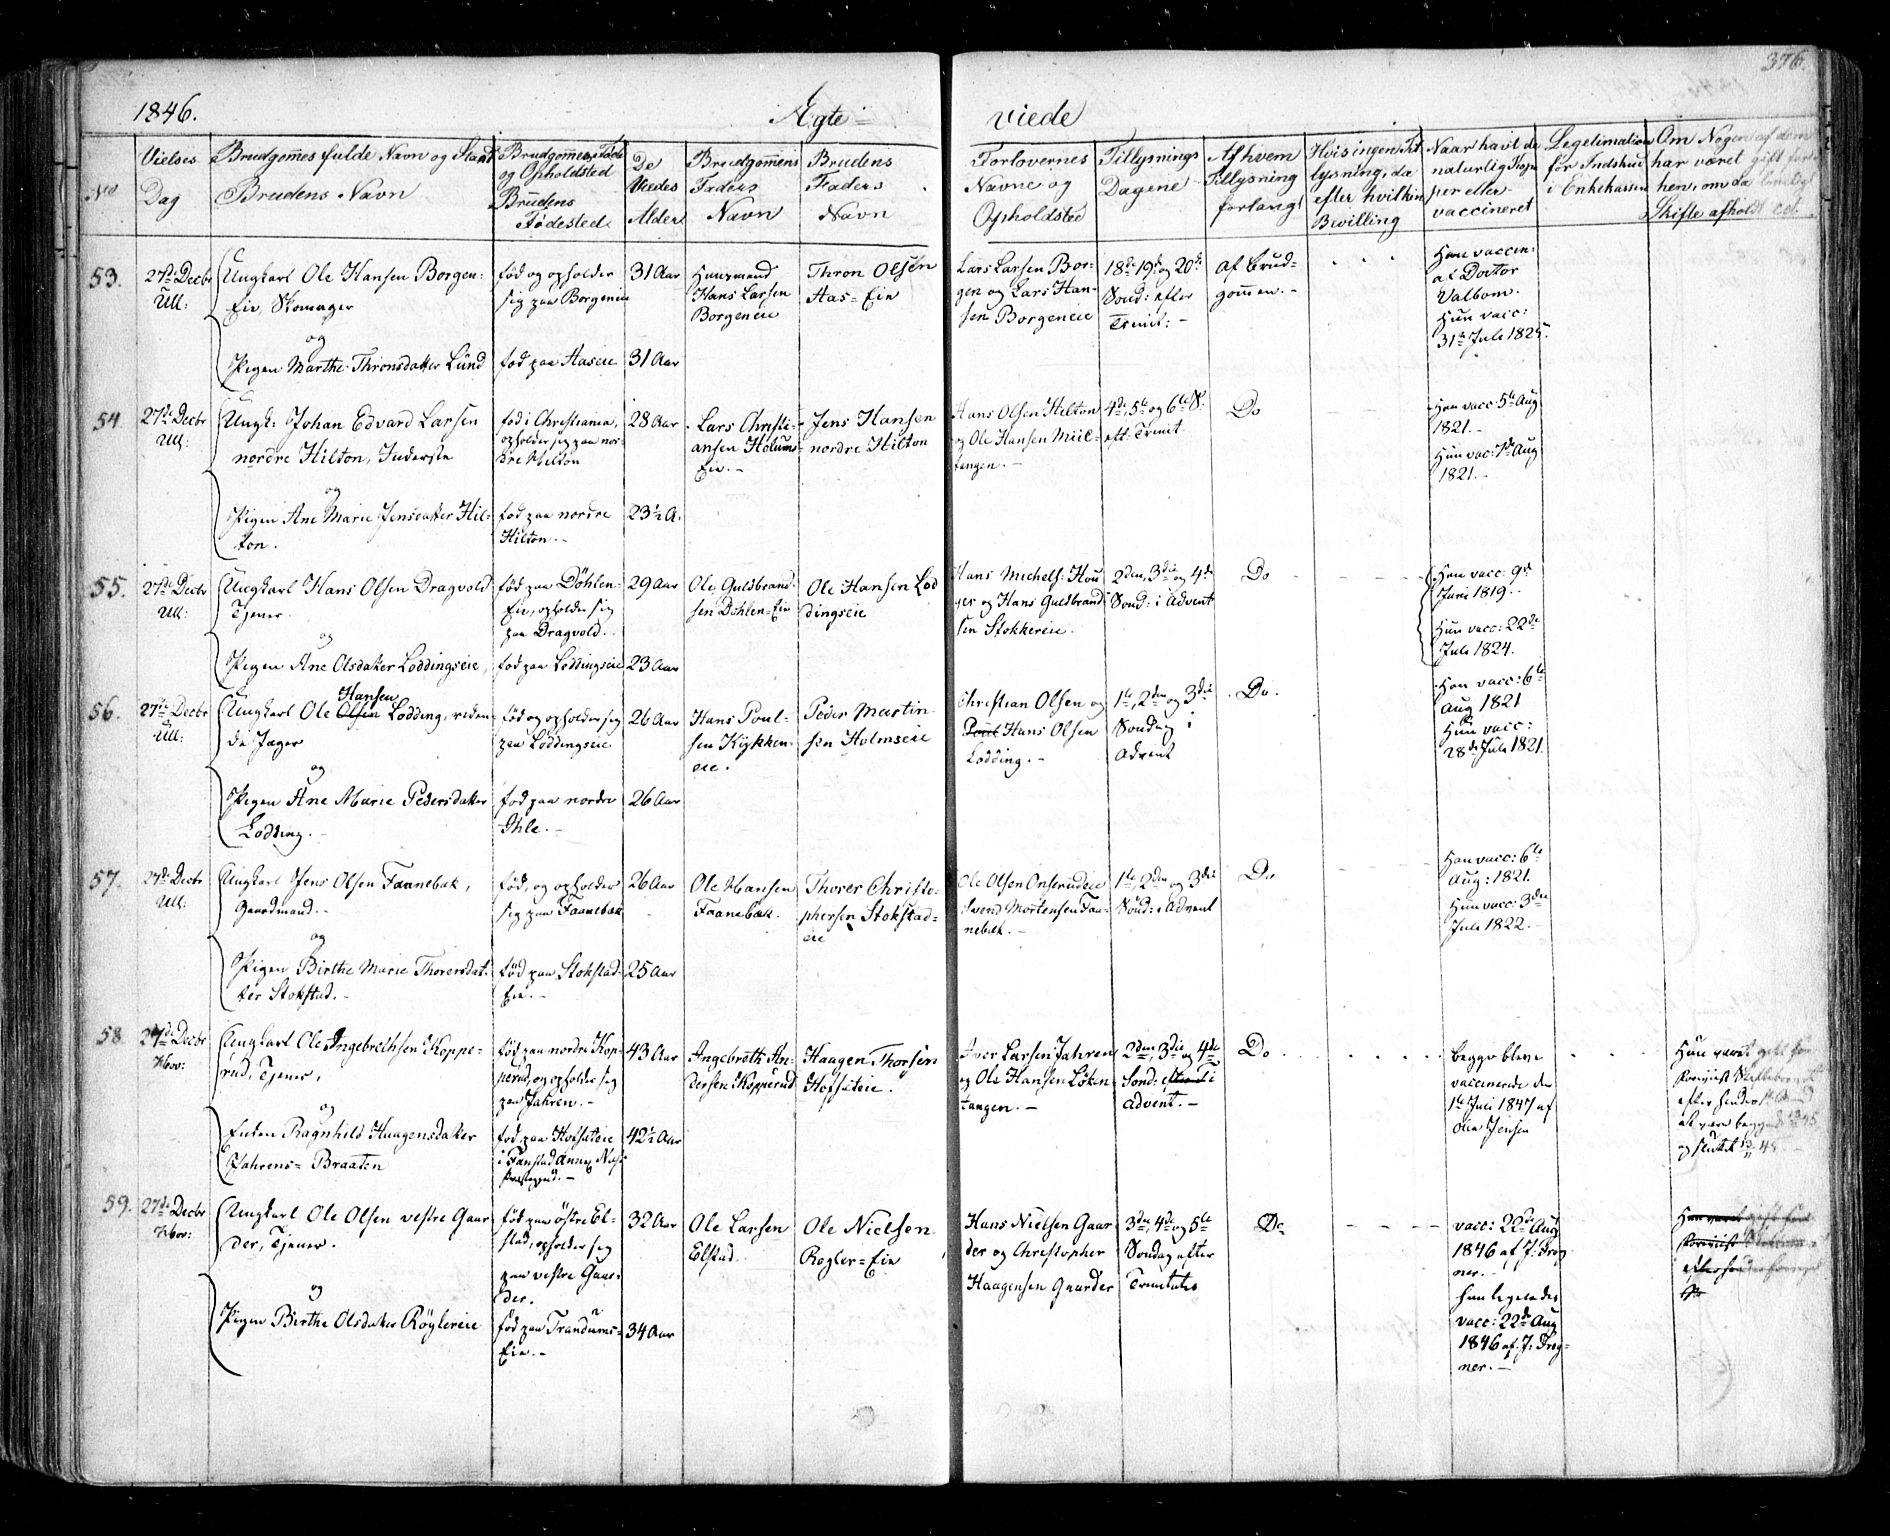 376.
1846. Ægte= viede
No
Vielses Dag
Brudgommes fulde Navn og Stand
Brudens Navn
Brudgommens Føde og Opholdsted
Brudens Fødested
De Viedes Alder
Brudgommens Faders Navn
Brudens Faders Navn
Forlovernes Navne og Opholdsted
Tillysnings Dagene
Af hvem Tillysning forlangt
Hvis ingen Tillysning, da efter hvilken Bevilling
Naar havt de naturlig Kopper eller vaccineret
Legetimation for Indskud i Enkekassen
Om Nogen af dem har været gift før hen, om da lovligt Skifte afholdt ect.
53.
27de Decbr
Ull:
Ungkarl Ole Hansen Borgen=
Eie, Skomager
og
Pigen Marthe Thronsdatter Lund
fød og opholder
sig paa Borgeneie
fød paa Aaseie
31 Aar
31 Aar
Huusmand
Hans Larsen
Borgeneie
Thron Olsen
Aas=Eie
Lars Larsen Bor-
gen og Lars Han-
sen Borgeneie
18de 19de og 20de
Sønd: efter
Trinit: -
af Brud-
gommen. -
Han vaccin:
af Doctor
Valbom.
Hun vacc:
31te Juli 1825.
54
27de Decbr
Ull:
Ungk: Johan Edvard Larsen
nordre Hilton, Inderste
og
Pigen Ane Marie Jensdatter Hil-
ton.
fød i Christiania,
opholder sig paa nor-
dre Hilton
fød paa nordre
Hilton. -
28 Aar
23½ A.
Lars Christi-
ansen Holums=
Eie. -
Jens Hansen
nordre Hilton
Hans Olsen Hilton
og Ole Hansen Miil-
tangen. -
4de, 5te og 6te S.
eft: Trinit.
Do
Han vacc: 5te Aug
1821. -
Hun vac: 7de Aug
1821. -
55.
27de Decbr
Ull:
Ungkarl Hans Olsen Dragvold
Tjener.
og
Pigen Ane Olsdatter Loddingseie,
fød paa Døhlen-
Eie, opholder sig
paa Dragvold.
fød paa Loddingseie
29 Aar
23 Aar
Ole Guldbrand-
sen Døhlen=Eie
Ole Hansen Lod
dingseie
Hans Michels: Hou
ger og Hans Guldbrand
sen Stokkereie.
2den, 3die og 4de
Sønd: i Advent
Do
Han vacc: 9de
Juni 1819. -
Hun vacc: 22de
Juli 1824.
56.
27de Decbr
Ull:
Hansen
Ungkarl Ole Olsen Lodding, riden-
de Jæger
og
Pigen Ane Marie Pedersdatter
Lodding. -
fød og opholder sig
paa Loddingseie
fød paa nordre
Ihle. -
26 Aar
26 Aar
Hans Poul-
sen Kjykken-
eie.
Peder Martin
sen Holmseie
Christian Olsen og
Poul Hans Olsen
Lodding. -
1te, 2den og 3die
Søndag i
Advent
Do.
Han vacc: 6te
Aug 1821
Hun vacc:
28de Juli 1821.
57.
27de Decbr
Ull:
Ungkarl Jens Olsen Faanebæk,
Gaardmand. -
og
Pigen Birthe Marie Thoresdat-
ter Stokstad. -
fød, og opholder
sig paa Faanebæk
fød paa Stokstad-
Eie. -
26 Aar
25 Aar
Ole Hansen
Faanebæk.
Thorer Christo-
phersen Stokstad=
eie
Ole Olsen Onsrudeie
Svend Mortensen Faa-
nebæk. -
1te, 2den og 3die
Sønd: i Advent
Do
Han vacc: 6te
Aug: 1821.
Hun vacc: 3die
Juli 1822. -
58
27de Decbr
Hov:
Ungkarl Ole Ingebrethsen Koppe-
rud, Tjener,
og
Enken Ragnhild Haagensdatter
Jahrens=Braaten
fød paa nordre Kop-
perud, og opholder sig
paa Jahren. -
fød paa Hofsæteie
i Fanstad Annex Næs
Præstegjeld. -
43 Aar
42½ Aar
Angebreth An-
dersen Kopperud
Haagen Thorsen
Hofsæteie.
Iver Larsen Jahren
og Ole Hansen Løken-
tangen. -
2den, 3die og 4de
Sønd: efter Ti
Advent. -
Do
begge bleve
vaccinerede den
1te Juli 1847 af
Ole Jensen
Hun været gift før
Foreviist Skiftebrev at
efter hendes
at være begyndt 45
og sluttet 45. -
59.
27de Decbr
Hov:
Ungkarl Ole Olsen vestre Gaar
der, Tjener.
og
Pigen Birthe Olsdatter Røglereie
fød paa østre El-
stad, opholder sig
paa vestre Gaar-
der.
fød paa Trandums=
Eie. -
32 Aar
34 Aar
Ole Larsen
Elstad.
Ole Nielsen
Rogler=Eie
Hans Nielsen Gaar
der og Christopher
Haagensen Gaarder
3die, 4de og 5te
Søndag efter
Trinitatis
Do
vacc: 22de Aug
1846 af J: Trog
ner. -
Hun ligeledes
vacc: 22de Aug
1846 af J: Trog-
ner. -
Hun været gift før
foreviist
efter hendes